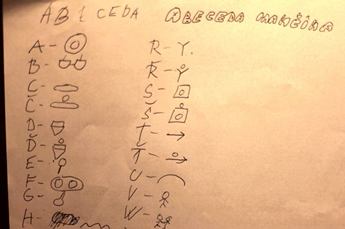 ABECEDA ABECEDA
A -
B -
C -
Č -
D -
Ď -
E -
F -
G -
H -
R -
Ř -
S -
Š -
T -
Ť -
U -
V -
W -